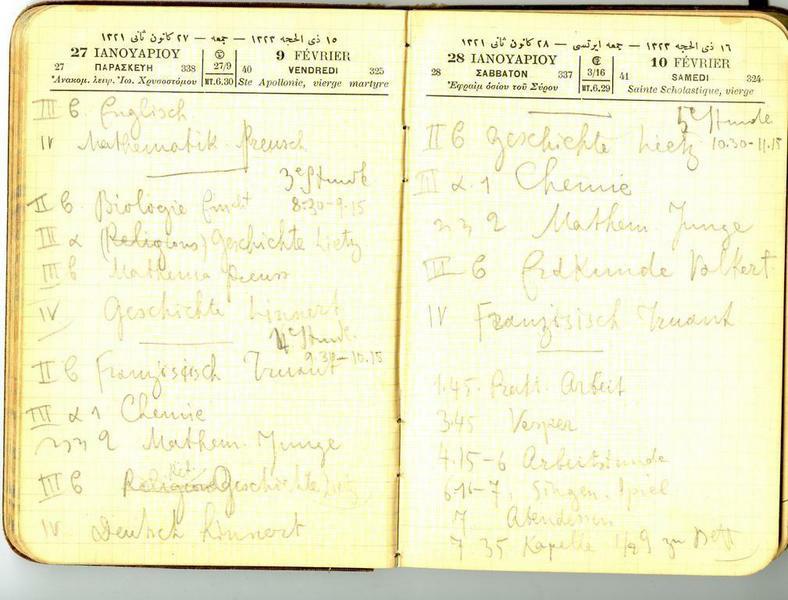 ١٥ ذی الحجه ١٣٢٣ — جمعه — ٢٧ كانون ثانی ١٣٢١
27 ΙΑΝΟΥΑΡΙΟΥ
27 ΠΑΡΑΣΚΕΥΗ 338
Ἀνακομ. λειψ. Ἰω. Χρυσοστόμου
27/9
ΜΤ.6.30
9 FÉVRIER
40 VENDREDI 325
Ste Apollonie, vierge martyre
III b. Englisch
IV Mathematik Preusch
3e Stunde
8.30-9.15
II b. Biologie
III α (Religions) Geschichte Lietz
III b Mathema Preuss
IV Geschichte Linnert
4e Stunde
9.30-10.15
II b Französisch Truant
III α 1 Chemie
" " 2 Mathem. Junge
III b Religions Geschichte Lietz
IV Deutsch Linnert
١٦ ذی الحجه ١٣٢٣ — جمعه ایرتسی — ٢٨ كانون ثانی ١٣٢١
28 ΙΑΝΟΥΑΡΙΟΥ
28 ΣΑΒΒΑΤΟΝ 337
Ἐφραὶμ ὁσίου τοῦ Σύρου
3/16
ΜΤ.6.29
10 FÉVRIER
41 SAMEDI 324
Sainte Scholastique, vierge
5e Stunde
II b Geschichte Lietz 10.30-11.15
III α. 1 Chemie
" " 2 Mathem. Junge
III b Erdkunde Volkert
IV Französisch Truant
1.45. Prakt. Arbeit
3.45 Vesper
4.15-6 Arbeitstunde
Singen. Spiel
7 Abendessen
7 35 Kapelle 1/2 9 zu Bett